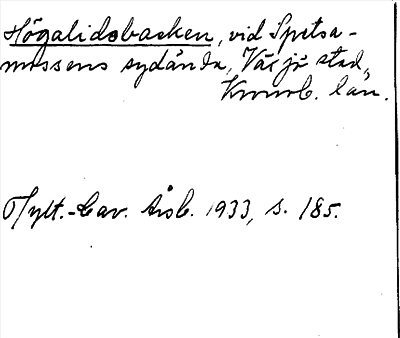 Högalidsbacken, vid Spetsa-
mossens sydända, Växjö stad,
Kronob. län.
Hylt.-Cav. årsb. 1933, s. 185.